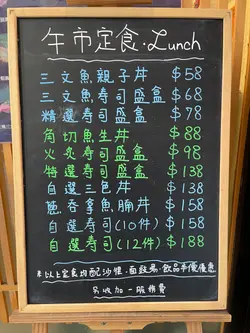 午市定食·Lunch
三文魚親子丼 $58
三文魚壽司盛盒 $68
精選壽司盛盒 $78
角切魚生丼 $88
火炙壽司盛盒 $98
特選壽司盛盒 $138
自選三色丼 $138
蔥吞拿魚腩丼 $158
自選壽司(10件) $158
自選壽司(12件) $188
*以上定食均配沙律·麵豉湯·飲品半價優惠
另收加一服務費